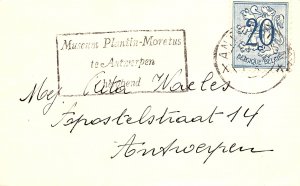 Museum Plantin-Moretus
te Antwerpen
20
BELGIQUE BELGIE
Mej Waeles
Apostelstraat 14
Antwerpen